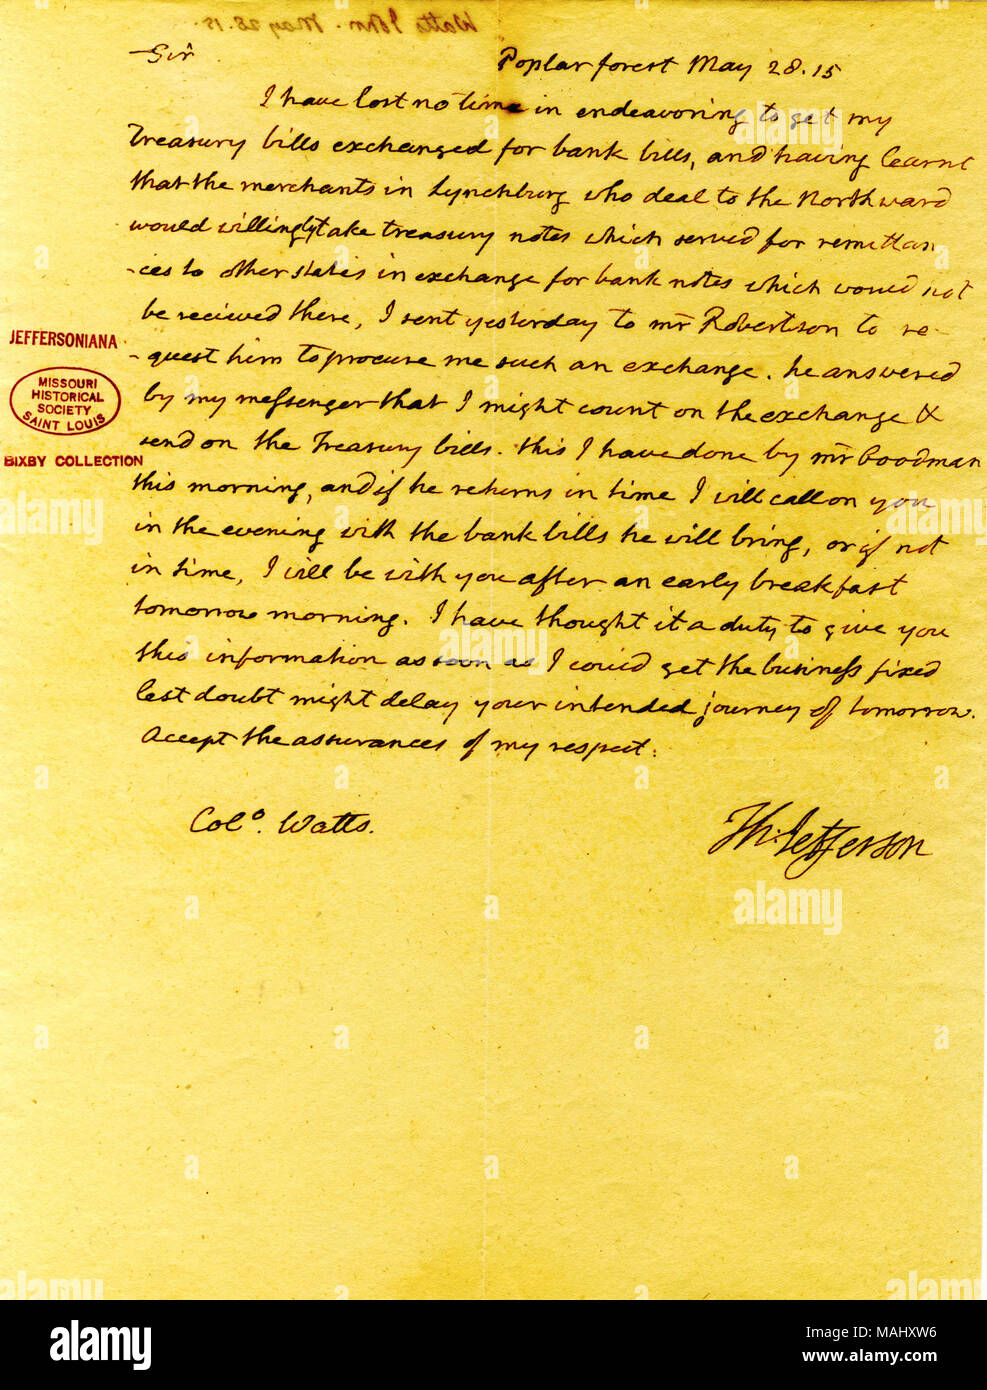 Watts John. May 28. 15.
Sir
Poplar forest May 28. 15
I have lost no time in endeavoring to get my
Treasury bills exchanged for bank bills, and having learnt
that the merchants in Lynchburg who deal to the Northward
would willingly take treasury notes which served for remittan
-ces to other states in exchange for bank notes which would not
be recieved there, I sent yesterday to mr Robertson to re-
-quest him to procure me such an exchange. he answered
by my messenger that I might count on the exchange &
send on the Treasury bills. this I have done by mr Goodman
this morning, and if he returns in time I will call on you
in the evening with the bank bills he will bring, or if not
in time, I will be with you after an early breakfast
tomorrow morning. I have thought it a duty to give you
this information as soon as I could get the business fixed
lest doubt might delay your intended journey of tomorrow.
Accept the assurances of my respect.
Colo. Watts.
Th: Jefferson
JEFFERSONIANA
MISSOURI
HISTORICAL
SOCIETY
SAINT LOUIS
BIXBY COLLECTION
alamy
Image ID: MAHXW6
www.alamy.com